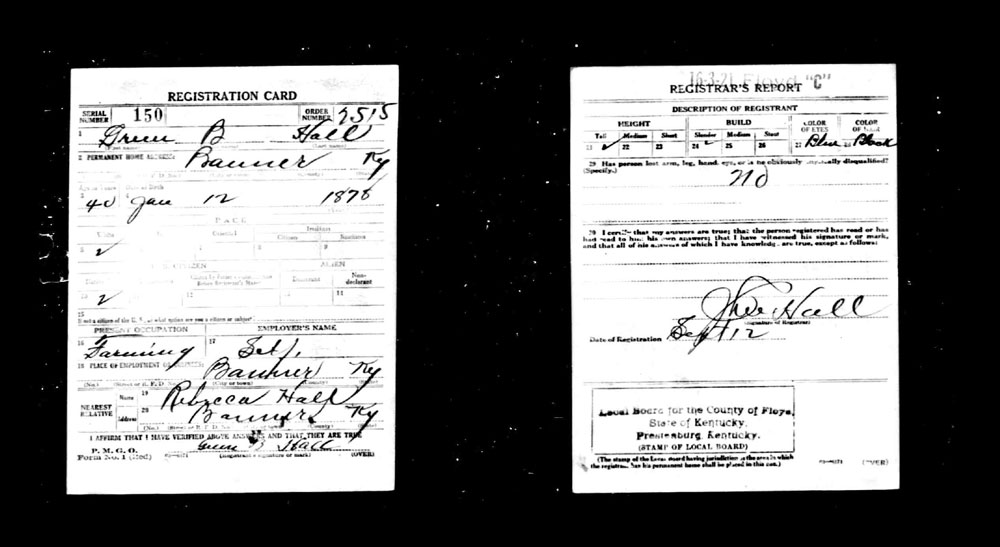 REGISTRATION CARD
SERIAL NUMBER 150 ORDER NUMBER 2515
1 Green B Hall
(First name) (Last name)
2 PERMANENT HOME ADDRESS: Banner Ky
Age in Years Date of Birth
3 40 Jan 12 1878
RACE
White Oriental Indian
Citizen Noncitizen
5 ✓ 8 9
U. S. CITIZEN ALIEN
Declarant Non-declarant
10 ✓ 12 14
15
If not a citizen of the U. S., of what nation are you a citizen or subject?
PRESENT OCCUPATION EMPLOYER'S NAME
16 Farming 17 Self.
18 PLACE OF EMPLOYMENT OR BUSINESS: Banner Ky
(No.) (Street or R. F. D. No.) (City or town) (County) (State)
NEAREST RELATIVE
Name 19 Rebecca Hall
Address 20 Banner Ky
(No.) (Street or R. F. D. No.) (City or town) (County) (State)
I AFFIRM THAT I HAVE VERIFIED ABOVE ANSWERS AND THAT THEY ARE TRUE
P. M. G. O.
Form No. 1 (Red) Green B Hall
(Registrant's signature or mark) (OVER)
16-3-21 Floyd "C"
REGISTRAR'S REPORT
DESCRIPTION OF REGISTRANT
HEIGHT BUILD COLOR OF EYES COLOR OF HAIR
Tall Medium Short Slender Medium Stout
21 ✓ 22 23 24 ✓ 25 26 27 Blue 28 Black
29 Has person lost arm, leg, hand, eye, or is he obviously physically disqualified?
(Specify.) No
30 I certify that my answers are true; that the person registered has read or has
had read to him his own answers; that I have witnessed his signature or mark,
and that all of his answers of which I have knowledge are true, except as follows:
Hall
(Signature of Registrar)
Date of Registration Sept 12
Local Board for the County of Floyd,
State of Kentucky,
Prestonburg, Kentucky.
(STAMP OF LOCAL BOARD)
(The stamp of the Local Board having jurisdiction of the area in which
the registrant has his permanent home shall be placed in this box.)
(OVER)